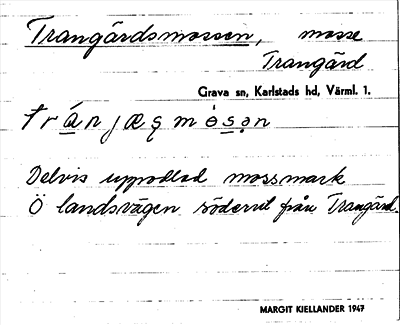 Trangårdsmossen, mosse
Trangård
Grava sn, Karlstads hd, Värml. 1.
Delvis uppodlad mossmark
Ö landsvägen söderut från Trangård.
MARGIT KIELLANDER 1947